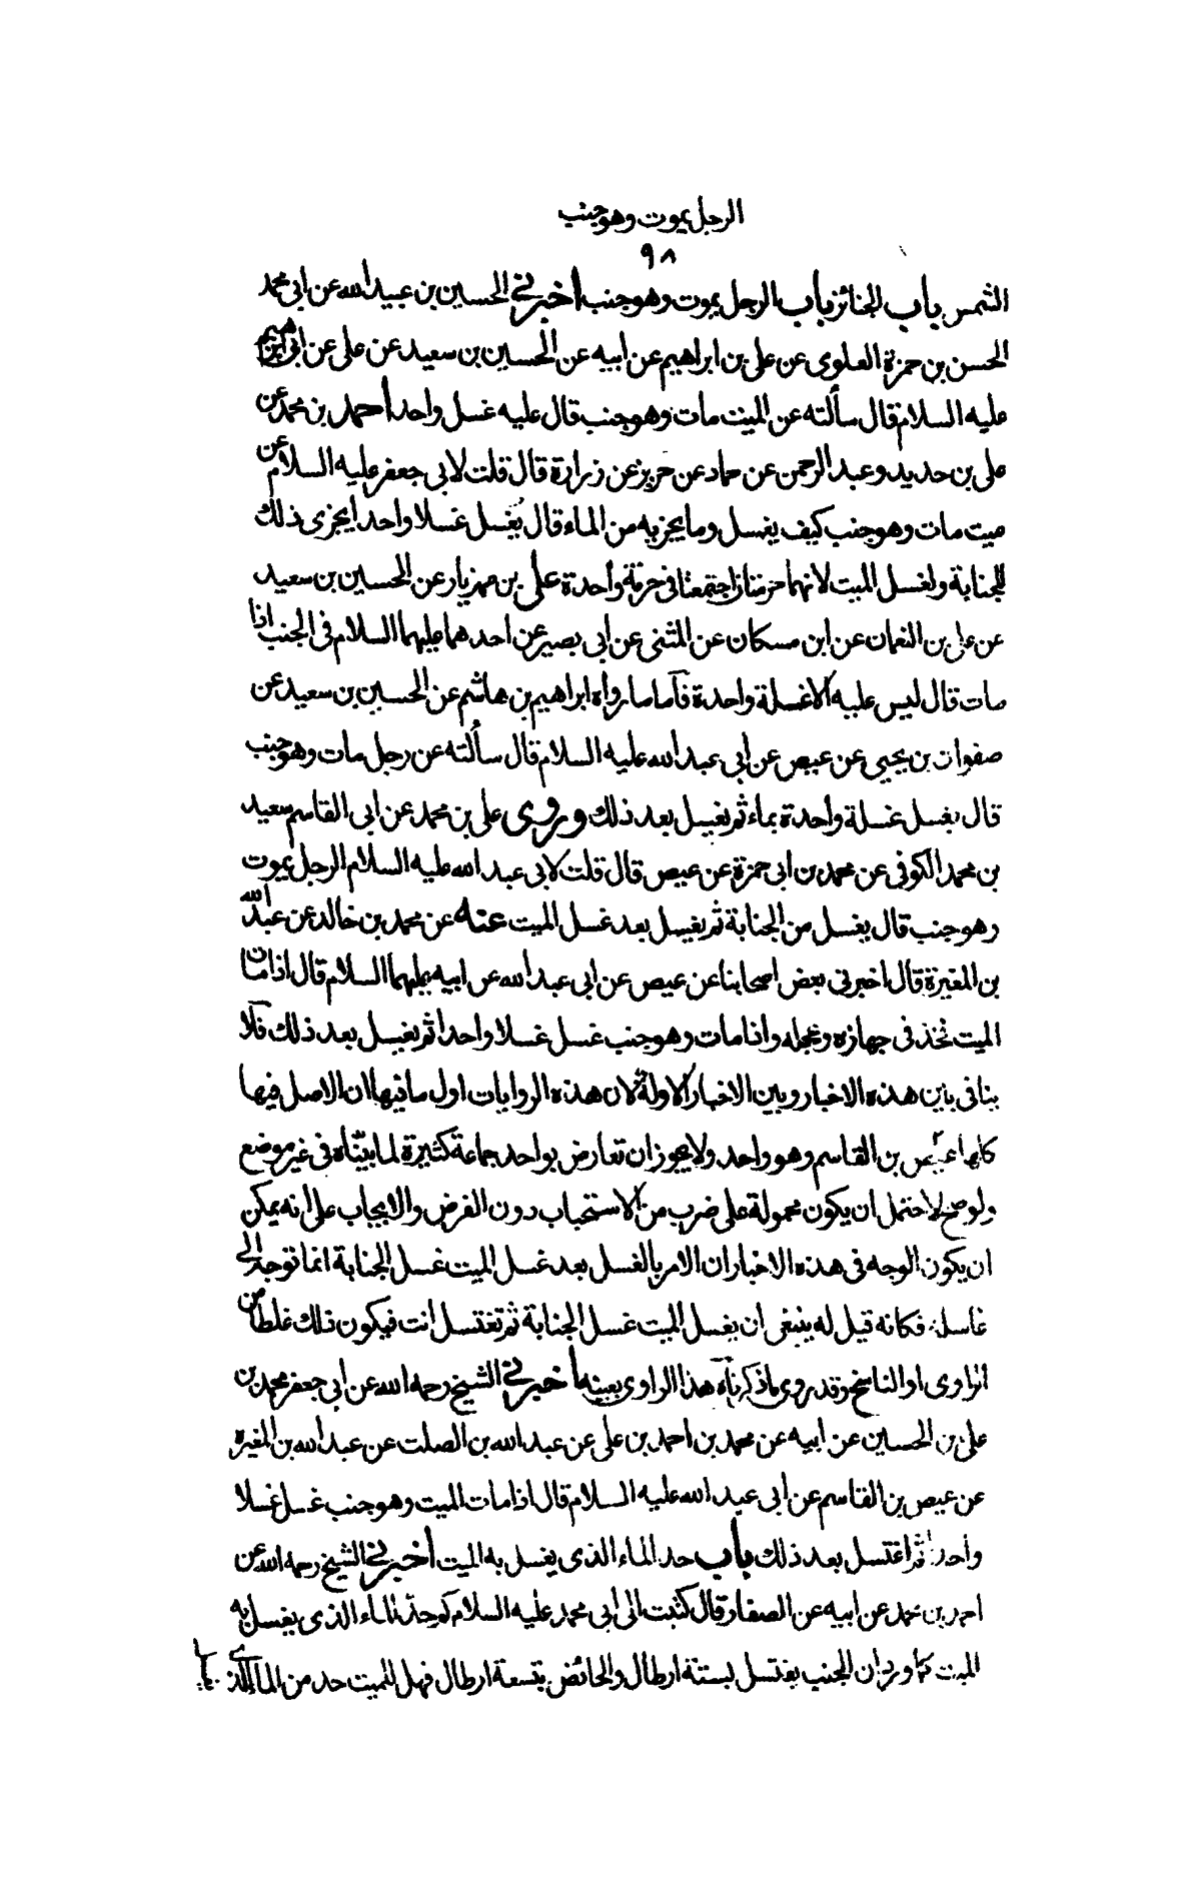 الرجل يموت وهو جنب
٩٨
الشمس باب الجنائز باب الرجل يموت وهو جنب اخبرني الحسين بن عبيد الله عن ابي محمد
الحسن بن حمزة العلوى عن على بن ابراهيم عن ابيه عن الحسين بن سعيد عن على عن ابى ابراهيم
عليه السلام قال سألته عن الميت مات وهو جنب قال عليه غسل واحد أحمد بن محمد عن
على بن حديد وعبد الرحمن عن حماد عن حريز عن زرارة قال قلت لابي جعفر عليه السلام عن
ميت مات وهو جنب كيف يغسل وما يجزيه من الماء قال يُغسل غسلا واحدا يجزى ذلك
للجنابة ولغسل الميت لانهما حرمتان اجتمعتا فى حرمة وأحدة على بن مهزيار عن الحسين بن سعيد
عن على بن النعمان عن ابن مسكان عن المثنى عن ابى بصير عن احدهما عليهما السلام فى الجنب اذا
مات قال ليس عليه الا غسلة واحدة فأما ما رواه ابراهيم بن هاشم عن الحسين بن سعيد عن
صفوان بن يحيى عن عيص عن ابي عبد الله عليه السلام قال سألته عن رجل مات وهو جنب
قال يغسل غسلة واحدة بماء ثم يغسل بعد ذلك وروى على بن محمد عن ابى القاسم سعيد
بن محمد الكوفى عن محمد بن ابى حمزة عن عيص قال قلت لابى عبد الله عليه السلام الرجل يموت
وهو جنب قال يغسل من الجنابة ثم يغسل بعد غسل الميت عنه عن محمد بن خالد عن عبد الله
بن المغيرة قال اخبرنى بعض اصحابنا عن عيص عن ابى عبد الله عن ابيه عليهما السلام قال اذا مات
الميت فخذ فى جهازه وعجله واذا مات وهو جنب غسل غسلا واحدا ثم يغسل بعد ذلك فلا
ينافى بين هذه الاخبار وبين الاخبار الاولة لان هذه الروايات اول ما فيها ان الاصل فيها
كلها عيص بن القاسم وهو واحد ولا يجوز ان تعارض بواحد جماعة كثيرة لما بيّناه فى غير موضع
ولو صح لاحتمل ان يكون محمولة على ضرب من الاستحباب دون الفرض والايجاب على انه يمكن
ان يكون الوجه فى هذه الاخبار ان الامر بالغسل بعد غسل الميت غسل الجنابة انما توجه الى
غاسله فكانه قيل له ينبغى ان يغسل الميت غسل الجنابة ثم تغتسل انت فيكون ذلك غلطا من
الراوى او الناسخ وقد روى ما ذكرناه هذا الراوى بعينه أخبرني الشيخ رحمه الله عن ابي جعفر محمد بن
على بن الحسين عن ابيه عن محمد بن احمد بن على عن عبد الله بن الصلت عن عبد الله بن المغيرة
عن عيص بن القاسم عن ابى عبد الله عليه السلام قال اذا مات الميت وهو جنب غسل غسلا
واحدا ثم اغتسل بعد ذلك باب حد الماء الذى يغسل به الميت أخبرني الشيخ رحمه الله عن
احمد بن محمد عن ابيه عن الصفار قال كتبت الى ابي محمد عليه السلام كم حد الماء الذى يغسل به
الميت كما ورد ان الجنب يغتسل بستة ارطال والحائض بتسعة ارطال فهل للميت حد من الماء الذى